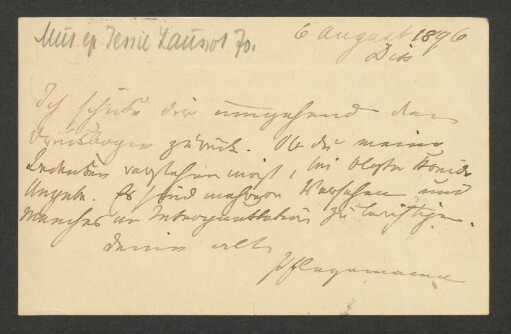 Mus. ep. Jessie Laussot 70.
6 August 1896
Dir
Ich schicke dir umgehend den
Druckbogen zurück. Ob du meine
Gedanken verstehen magst, bei
Angabe. Es sind mehrere Versehen und
Manches an Interpunktation zu berichtigen.
Dein alter